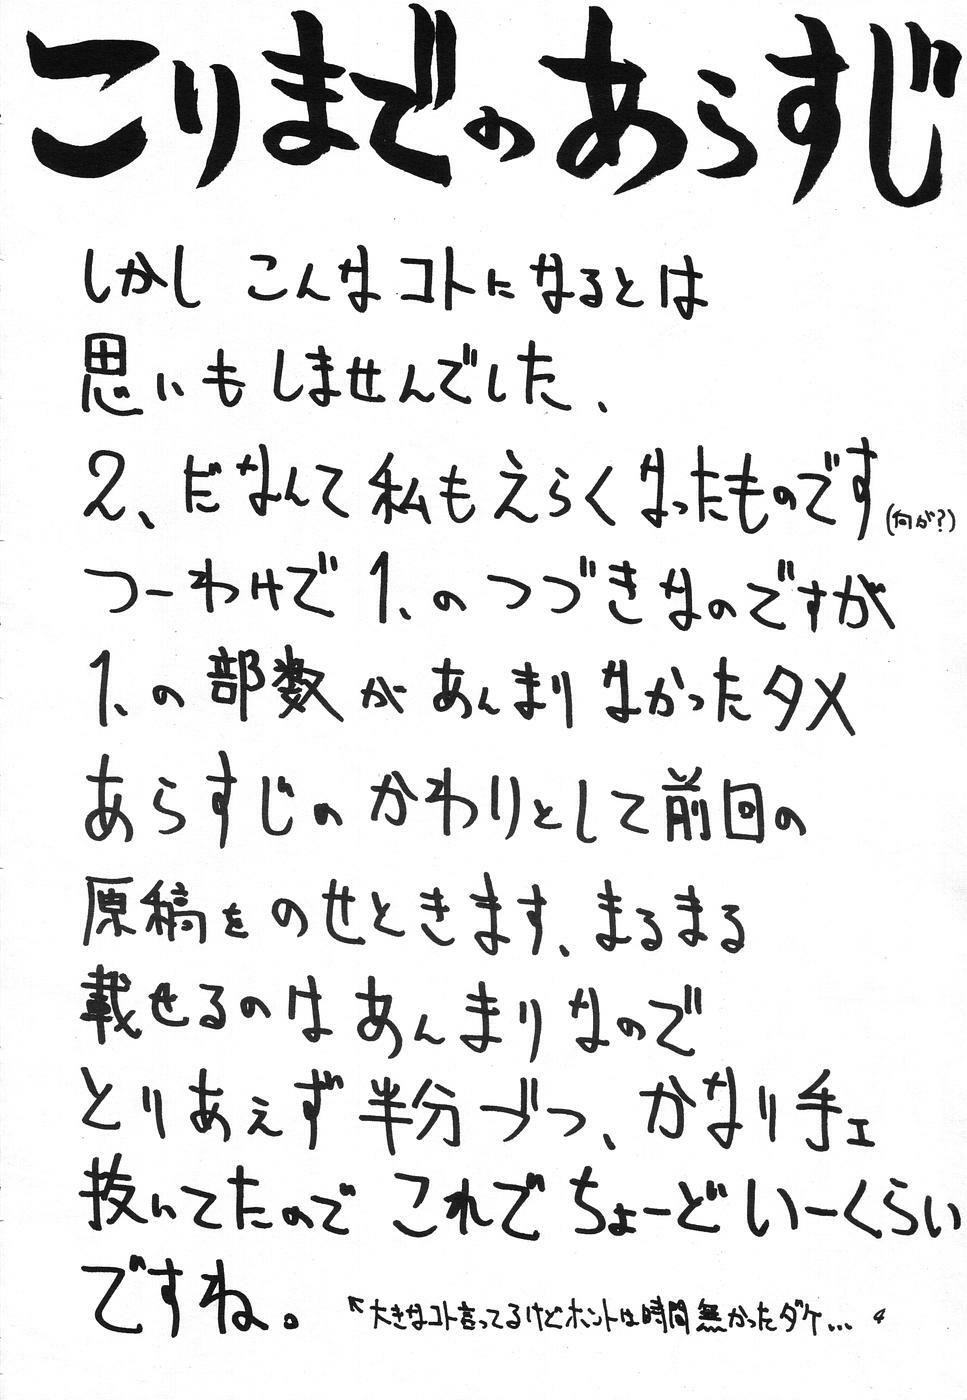 こりまでのあらすじ
しかし こんなコトになるとは
思いも しませんでした、
2、だなんて私もえらくなったものです(何が?)
つーわけで 1、の つづきなのですが
1、の 部数が あんまり なかったタメ
あらすじの かわりとして前回の
原稿を のせときます、まるまる
載せるのは あんまり なので
とりあえず 半分づつ、かなり手ェ
抜いてたので これで ちょーど いーくらい
ですね。
↖大きなコト言ってるけどホントは時間無かったダケ…
4